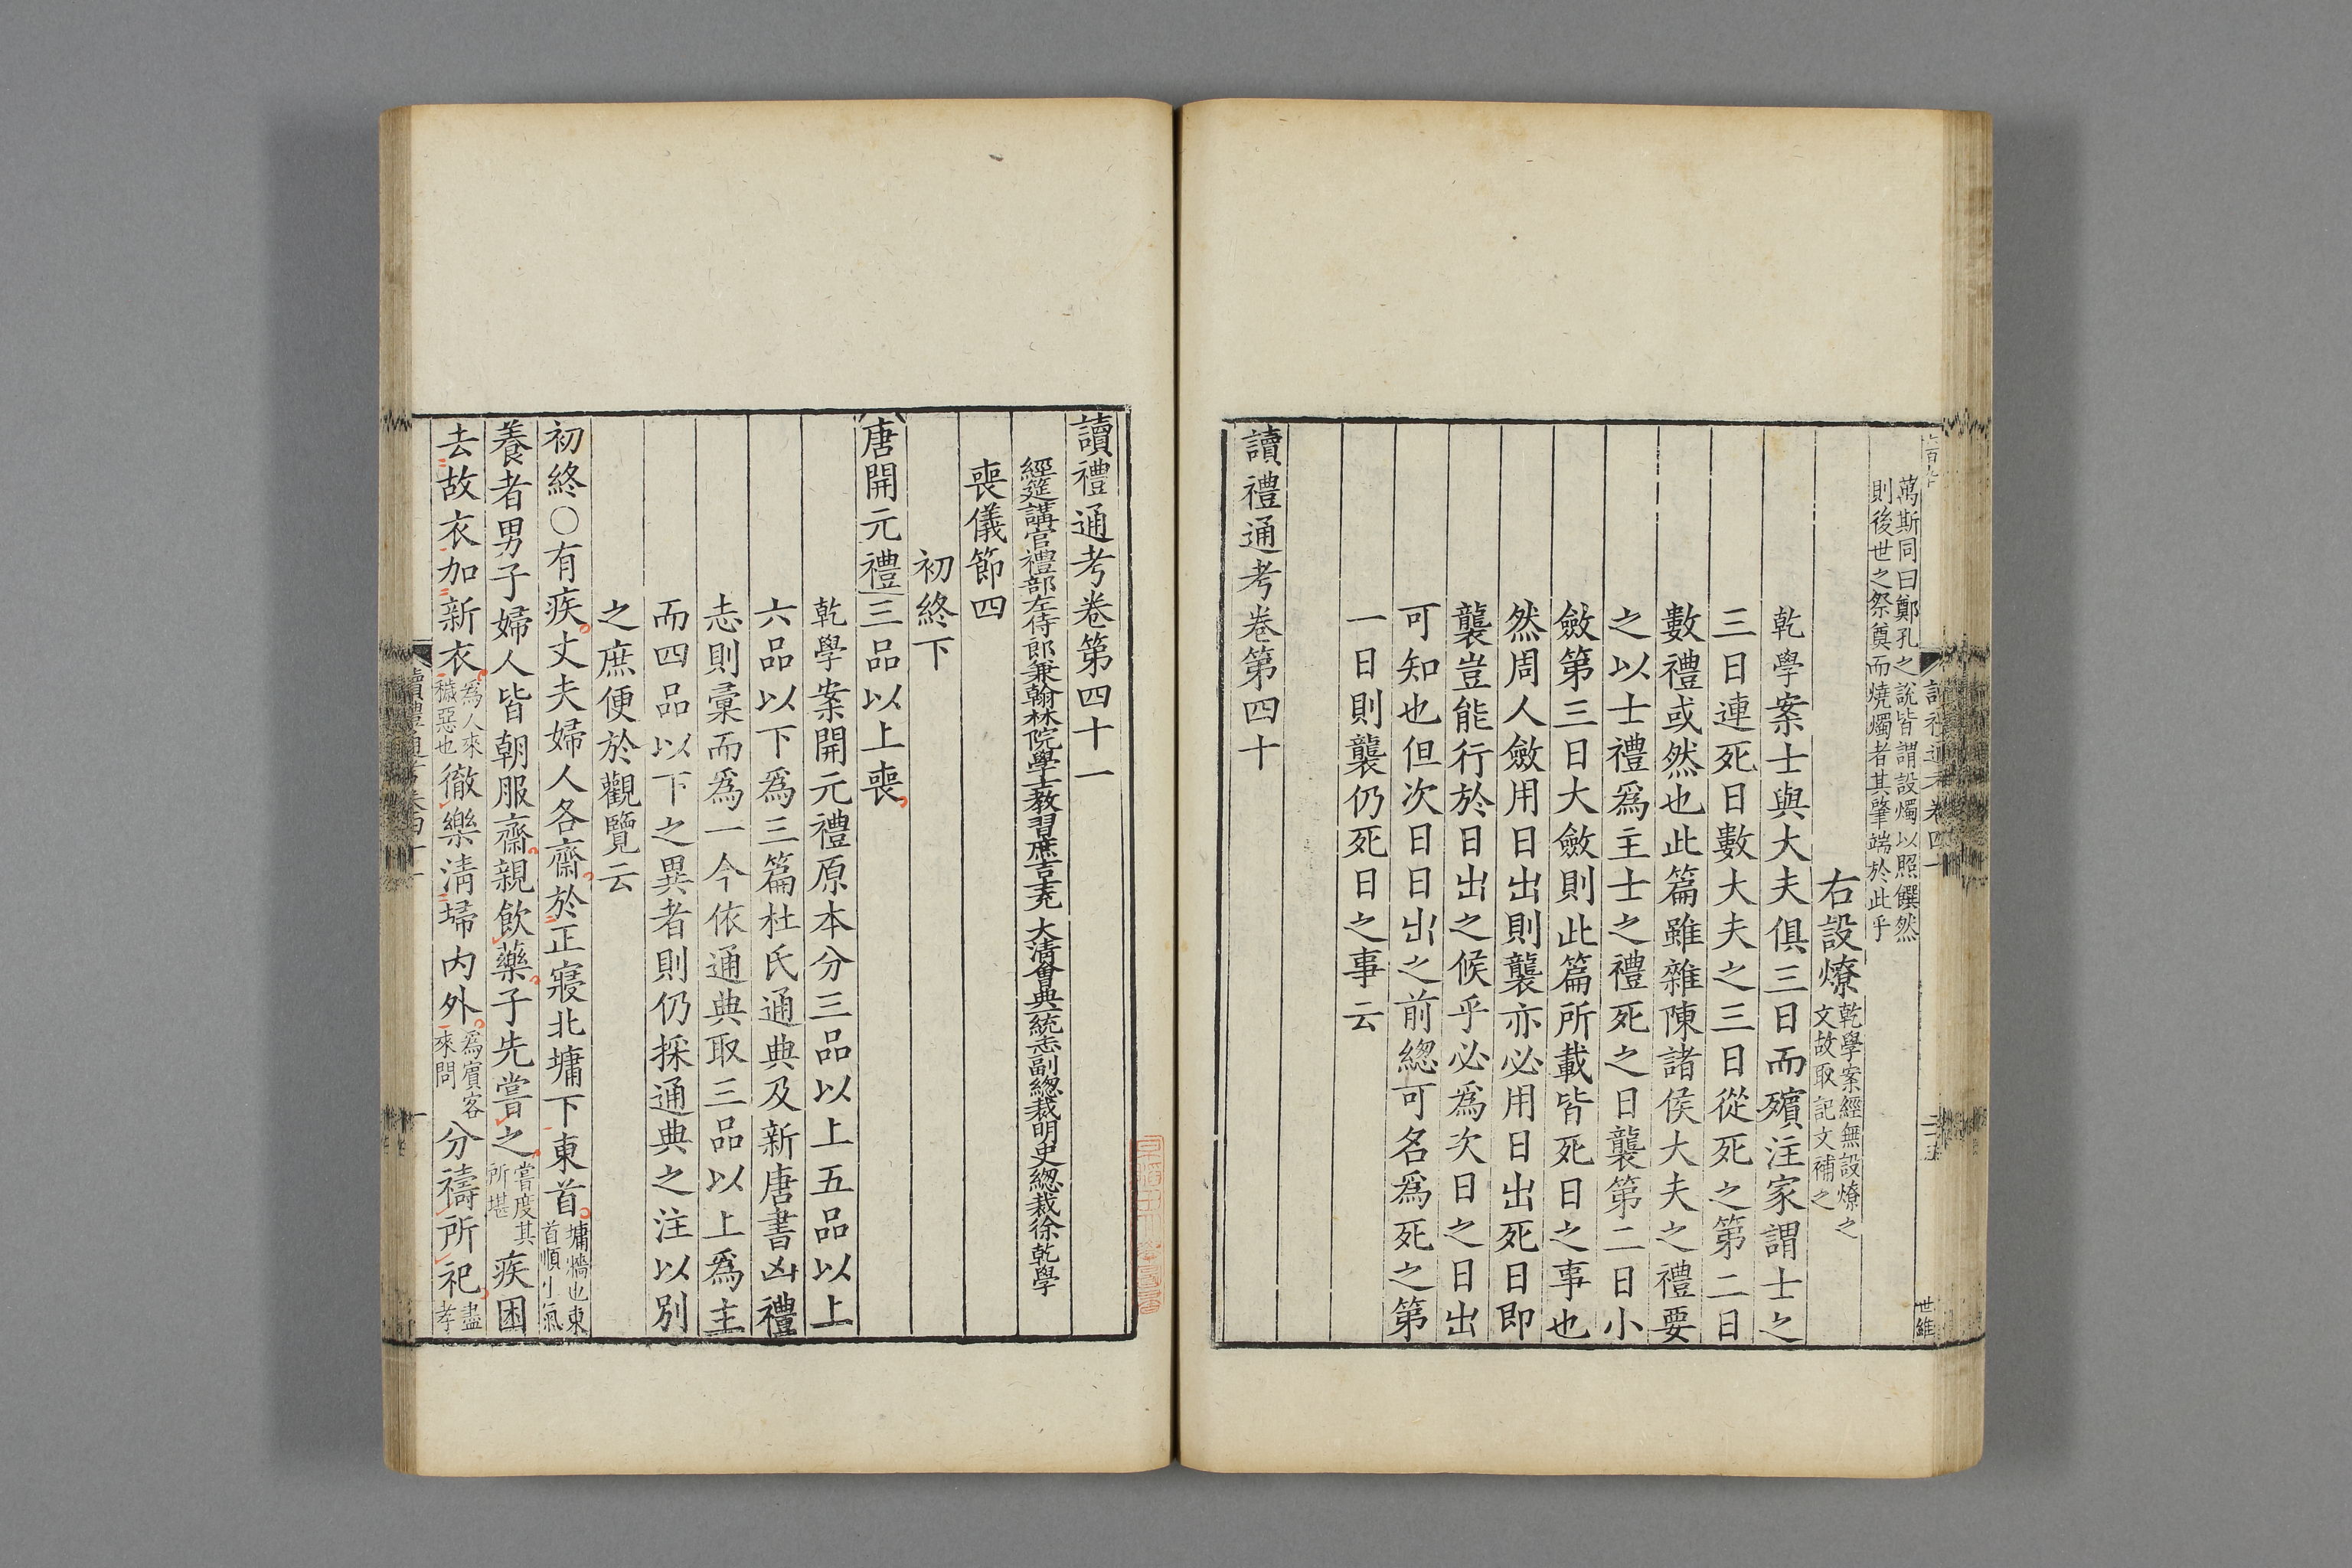 萬斯同曰鄭孔之說皆謂設燭以照饌然
則後世之祭奠而燒燭者其肇端於此乎
右設燎乾學案經無設燎之
文故取記文補之
乾學案士與大夫俱三日而殯注家謂士之
三日連死日數大夫之三日從死之第二日
數禮或然也此篇雖雜陳諸侯大夫之禮要
之以士禮爲主士之禮死之日襲第二日小
斂第三日大斂則此篇所載皆死日之事也
然周人斂用日出則襲亦必用日出死日即
襲豈能行於日出之候乎必爲次日之日出
可知也但次日日出之前總可名爲死之第
一日則襲仍死日之事云
讀禮通考卷第四十
世維
讀禮通考卷第四十一
經筵講官禮部左侍郎兼翰林院學士教習庶吉士充 大清會典一統志副總裁明史總裁徐乾學
喪儀節四
初終下
唐開元禮三品以上喪
乾學案開元禮原本分三品以上五品以上
六品以下爲三篇杜氏通典及新唐書凶禮
志則彙而爲一今依通典取三品以上爲主
而四品以下之異者則仍採通典之注以別
之庶便於觀覽云
初終○有疾丈夫婦人各齋於正寢北墉下東首墉牆也東
首順生氣
養者男子婦人皆朝服齋親飲藥子先嘗之嘗度其
所堪疾困
去故衣加新衣爲人來
穢惡也徹樂清埽內外爲賓客
來問分禱所祀盡
孝